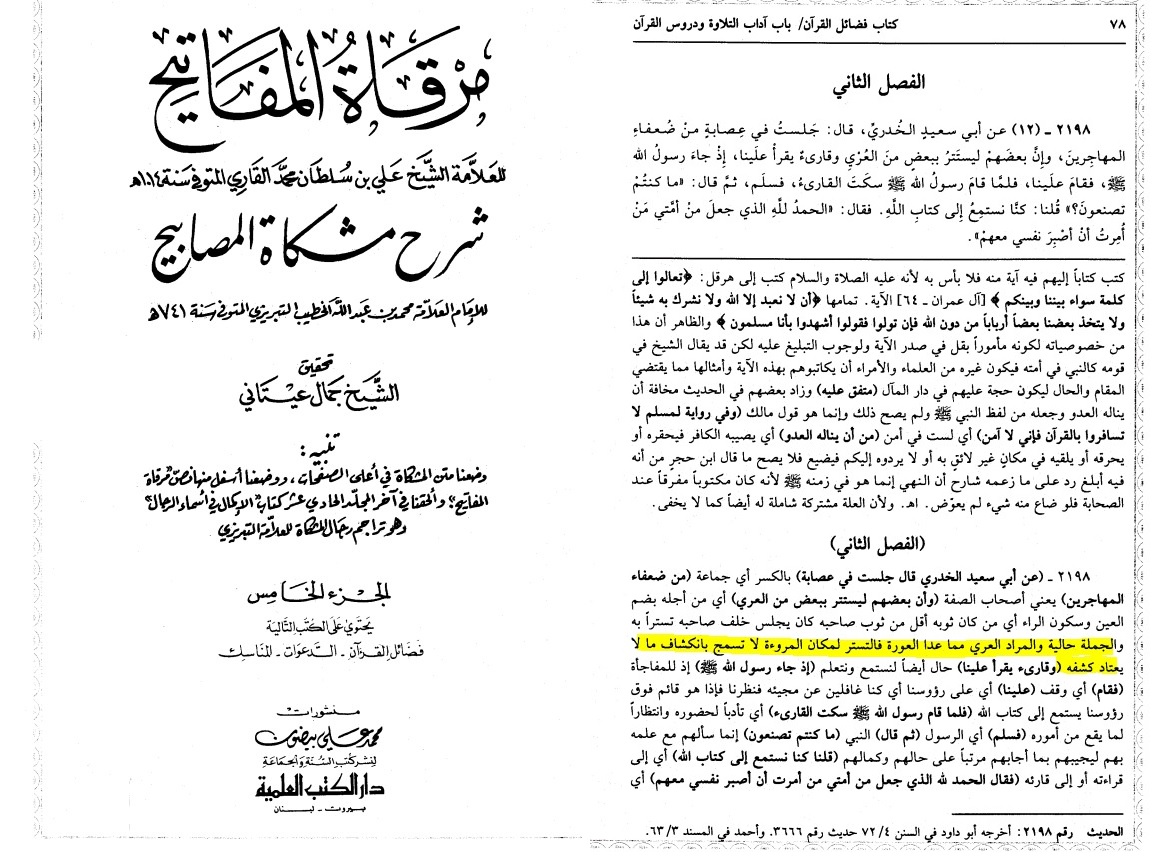 مرقاة المفاتيح
للعلامة الشيخ علي بن سلطان محمد القاري المتوفى سنة ١٠١٤هـ
شرح مشكاة المصابيح
للإمام العلامة محمد بن عبد الله الخطيب التبريزي المتوفى سنة ٧٤١هـ
تحقيق
الشيخ جمال عيتاني
تنبيه:
وضعنا متن المشكاة في أعلى الصفحات، ووضعنا أسفل منها نص مرقاة
المفاتيح، وألحقنا في آخر المجلد الحادي عشر كتاب الإكمال في أسماء الرجال
وهو تراجم رجال المشكاة للعلامة التبريزي
الجزء الخامس
يحتوي على الكتب التالية
فضائل القرآن - الدعوات - المناسك
منشورات
محمد علي بيضون
لنشر كتب السنة والجماعة
دار الكتب العلمية
بيروت - لبنان
٧٨ كتاب فضائل القرآن/ باب آداب التلاوة ودروس القرآن
الفصل الثاني
٢١٩٨ ـ (١٢) عن أبي سعيدٍ الخُدريِّ، قال: جَلستُ في عِصابةٍ منْ ضُعفاءِ
المهاجِرينَ، وإِنَّ بعضَهمْ ليستَتِرُ ببعضٍ منَ العُرْيِ وقارىءٌ يقرأُ علَينا، إِذْ جاءَ رسولُ الله
ﷺ، فقامَ علَينا، فلمَّا قامَ رسولُ الله ﷺ سكَتَ القارىءُ، فسلَم، ثمَّ قال: «ما كنتُمْ
تصنعونَ؟» قُلنا: كنَّا نستمِعُ إِلى كتابِ اللَّهِ. فقال: «الحمدُ للَّهِ الذي جعلَ منْ أمَّتي مَنْ
أُمِرتُ أنْ أصْبِرَ نفسي معهمْ».
كتب كتاباً إليهم فيه آية منه فلا بأس به لأنه عليه الصلاة والسلام كتب إلى هرقل: ﴿تعالوا إلى
كلمة سواء بيننا وبينكم﴾ [آل عمران ـ ٦٤] الآية. تمامها ﴿أن لا نعبد إلا الله ولا نشرك به شيئاً
ولا يتخذ بعضنا بعضاً أرباباً من دون الله فإن تولوا فقولوا أشهدوا بأنا مسلمون﴾ والظاهر أن هذا
من خصوصياته لكونه مأموراً بقل في صدر الآية ولوجوب التبليغ عليه لكن قد يقال الشيخ في
قومه كالنبي في أمته فيكون غيره من العلماء والأمراء أن يكاتبوهم بهذه الآية وأمثالها مما يقتضي
المقام والحال ليكون حجة عليهم في دار المآل (متفق عليه) وزاد بعضهم في الحديث مخافة أن
يناله العدو وجعله من لفظ النبي ﷺ ولم يصح ذلك وإنما هو قول مالك (وفي رواية لمسلم لا
تسافروا بالقرآن فإني لا آمن) أي لست في أمن (من أن يناله العدو) أي يصيبه الكافر فيحقره أو
يحرقه أو يلقيه في مكانٍ غير لائقٍ به أو لا يردوه إليكم فيضيع فلا يصح ما قال ابن حجرٍ من أنه
فيه أبلغ رد على ما زعمه شارح أن النهي إنما هو في زمنه ﷺ لأنه كان مكتوباً مفرقاً عند
الصحابة فلو ضاع منه شيء لم يعوّض. اهـ. ولأن العلة مشتركة شاملة له أيضاً كما لا يخفى.
(الفصل الثاني)
٢١٩٨ ـ (عن أبي سعيد الخدري قال جلست في عصابة) بالكسر أي جماعة (من ضعفاء
المهاجرين) يعني أصحاب الصفة (وأن بعضهم ليستتر ببعض من العري) أي من أجله بضم
العين وسكون الراء أي من كان ثوبه أقل من ثوب صاحبه كان يجلس خلف صاحبه تستراً به
والجملة حالية والمراد العري مما عدا العورة فالتستر لمكان المروءة لا تسمح بانكشاف ما لا
يعتاد كشفه (وقارىء يقرأ علينا) حال أيضاً لنستمع ونتعلم (إذ جاء رسول الله ﷺ) إذ للمفاجأة
(فقام) أي وقف (علينا) أي على رؤوسنا أي كنا غافلين عن مجيئه فنظرنا فإذا هو قائم فوق
رؤوسنا يستمع إلى كتاب الله (فلما قام رسول الله ﷺ سكت القارىء) أي تأدباً لحضوره وانتظاراً
لما يقع من أموره (فسلم) أي الرسول (ثم قال) النبي (ما كنتم تصنعون) إنما سألهم مع علمه
بهم ليجيبهم بما أجابهم مرتباً على حالهم وكمالهم (قلنا كنا نستمع إلى كتاب الله) أي إلى
قراءته أو إلى قارئه (فقال الحمد لله الذي جعل من أمتي من أمرت أن أصبر نفسي معهم) أي
الحديث رقم ٢١٩٨: أخرجه أبو داود في السنن ٧٢/٤ حديث رقم ٣٦٦٦. وأحمد في المسند ٦٣/٣.